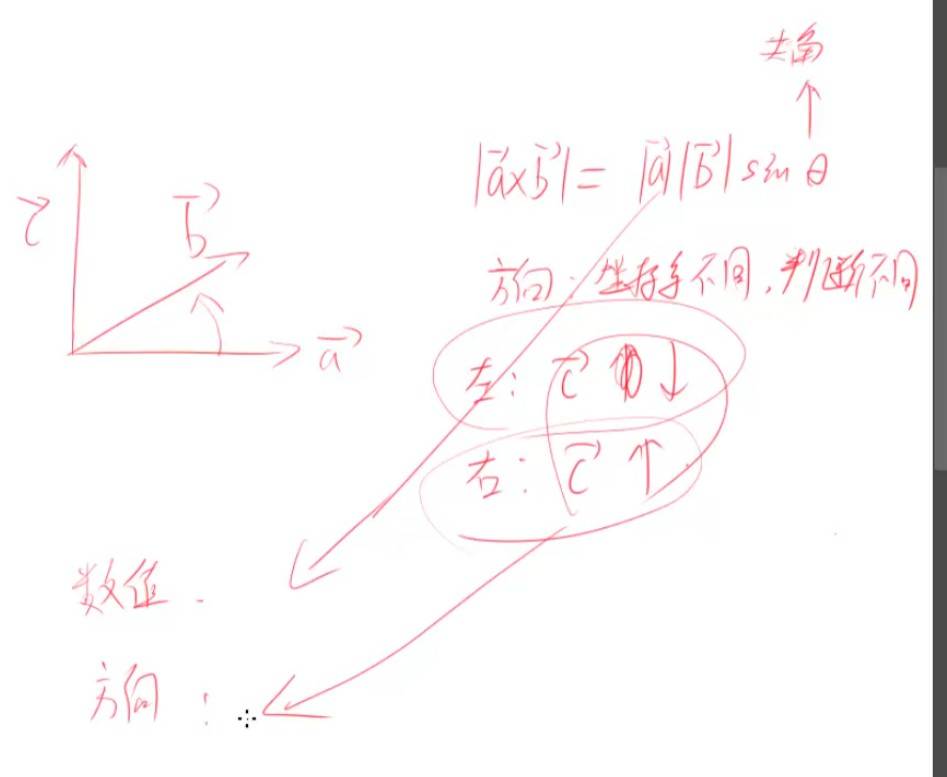 夹角
↑
|a⃗×b⃗| = |a⃗||b⃗| sin θ
c⃗
b⃗
a⃗
方向：坐标系不同，判断不同
左：c⃗ ↓
右：c⃗ ↑
数值：
方向：